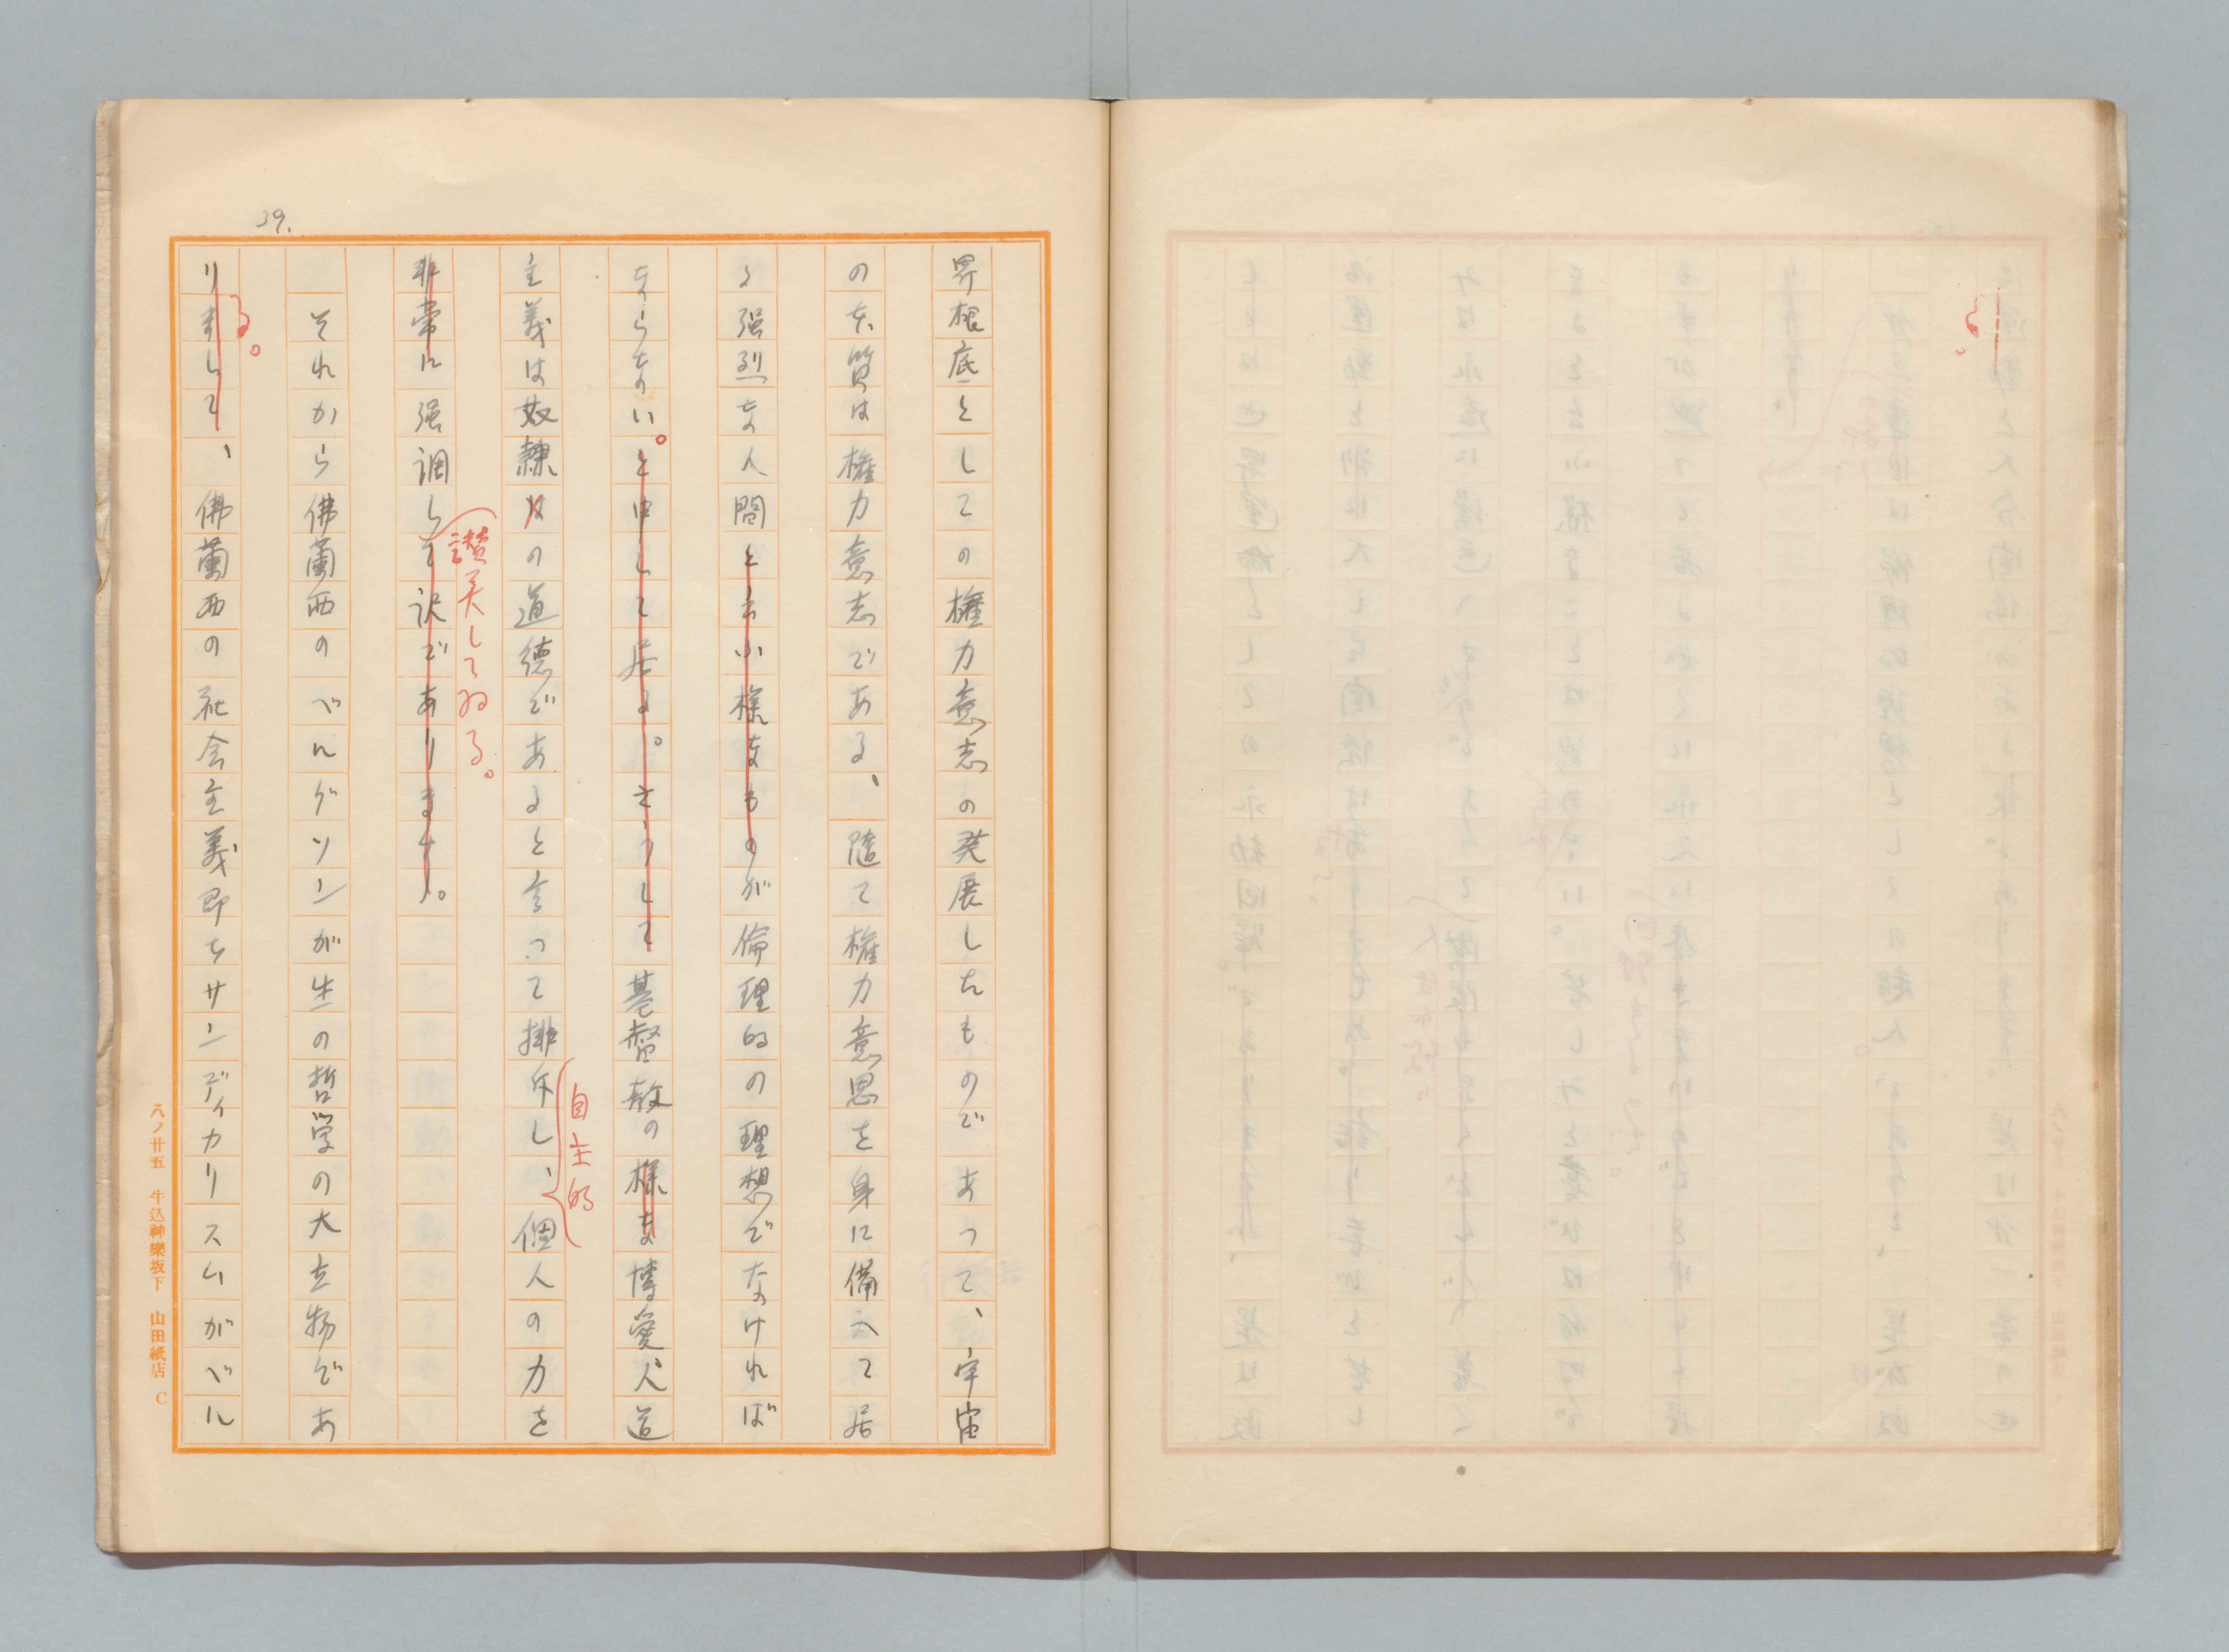 39.
界根底としての権力意志の発展したものであって、宇宙
の本質は権力意志である、随て権力意思を身に備へて居
る强烈な人間と云ふ様なものが倫理的の理想でなければ
ならない。と申して居る。そうして基督教の様な博愛人道
主義は奴隷はの道徳であると言って排斥し、個人の力を
自主的
非常に强調して訳であります。
讃美してゐる。
それから佛蘭西のベルグソンが生の哲学の大立物であ
りまして、佛蘭西の社会主義即ちサンディカリスムがベル
る。
八ノ廿五 牛込神樂坂下 山田紙店 C